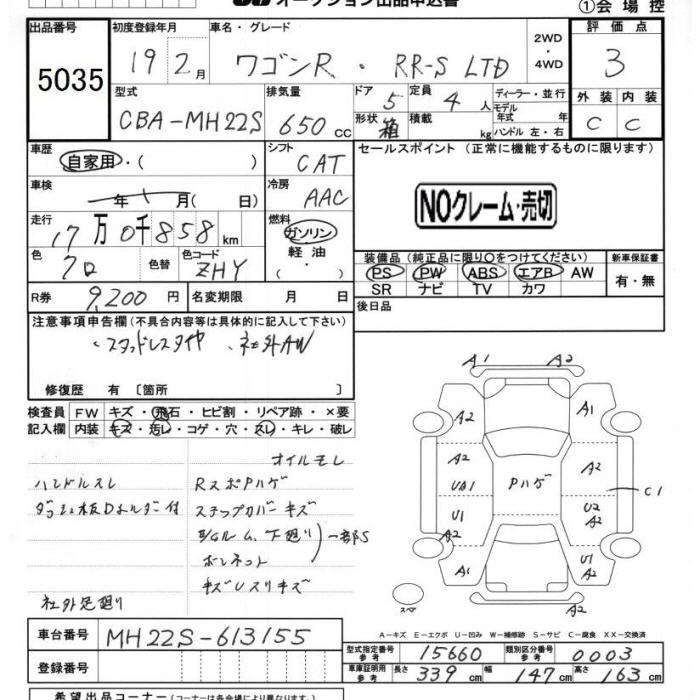 オークション出品申込書
①会場控
出品番号 5035
初度登録年月 19 2月
車名・グレード ワゴンR・RR-S LTD
2WD・4WD
評価点 3
型式 CBA-MH22S
排気量 650cc
ドア 5
形状 箱
定員 4人
積載 kg
ディーラー・並行
モデル年式 年
ハンドル 左・右
外装 C 内装 C
車歴 自家用・( )
シフト CAT
セールスポイント (正常に機能するものに限ります)
車検 年 月( 日)
冷房 AAC
NOクレーム・売切
走行 17万0千858km
燃料 ガソリン・軽油・
色 クロ 色替 色コード ZHY
装備品 (純正品に限り○をつけてください)
新車保証書
PS PW ABS エアB AW
SR ナビ TV カワ
有・無
R券 9,200円 名変期限 月 日
後日品
注意事項申告欄(不具合内容等は具体的に記入して下さい)
・スタッドレスタイヤ ・社外AW
修復歴 有〔箇所 〕
検査員記入欄
FW キズ・飛石・ヒビ割・リペア跡・×要
内装 キズ・汚レ・コゲ・穴・スレ・キレ・破レ
オイルモレ
ハンドルスレ RスポPハゲ
ステップカバーキズ
下廻り 一部S
ボンネット
社外足廻り
A1 A2
A2 A1
A2 A2
UA1 Pハゲ C1
U1 U2 A2
A2 U1
A1 A2
スペア A2
A-キズ E-エクボ U-凹み W-補修跡 S-サビ C-腐食 XX-交換済
車台番号 MH22S-613155
登録番号
型式指定番号 参考 15660 類別区分番号 参考 0003
車庫証明用 参考 長さ 339cm 幅 147cm 高さ 163cm
希望出品コーナー(コーナーは各会場により異なります)